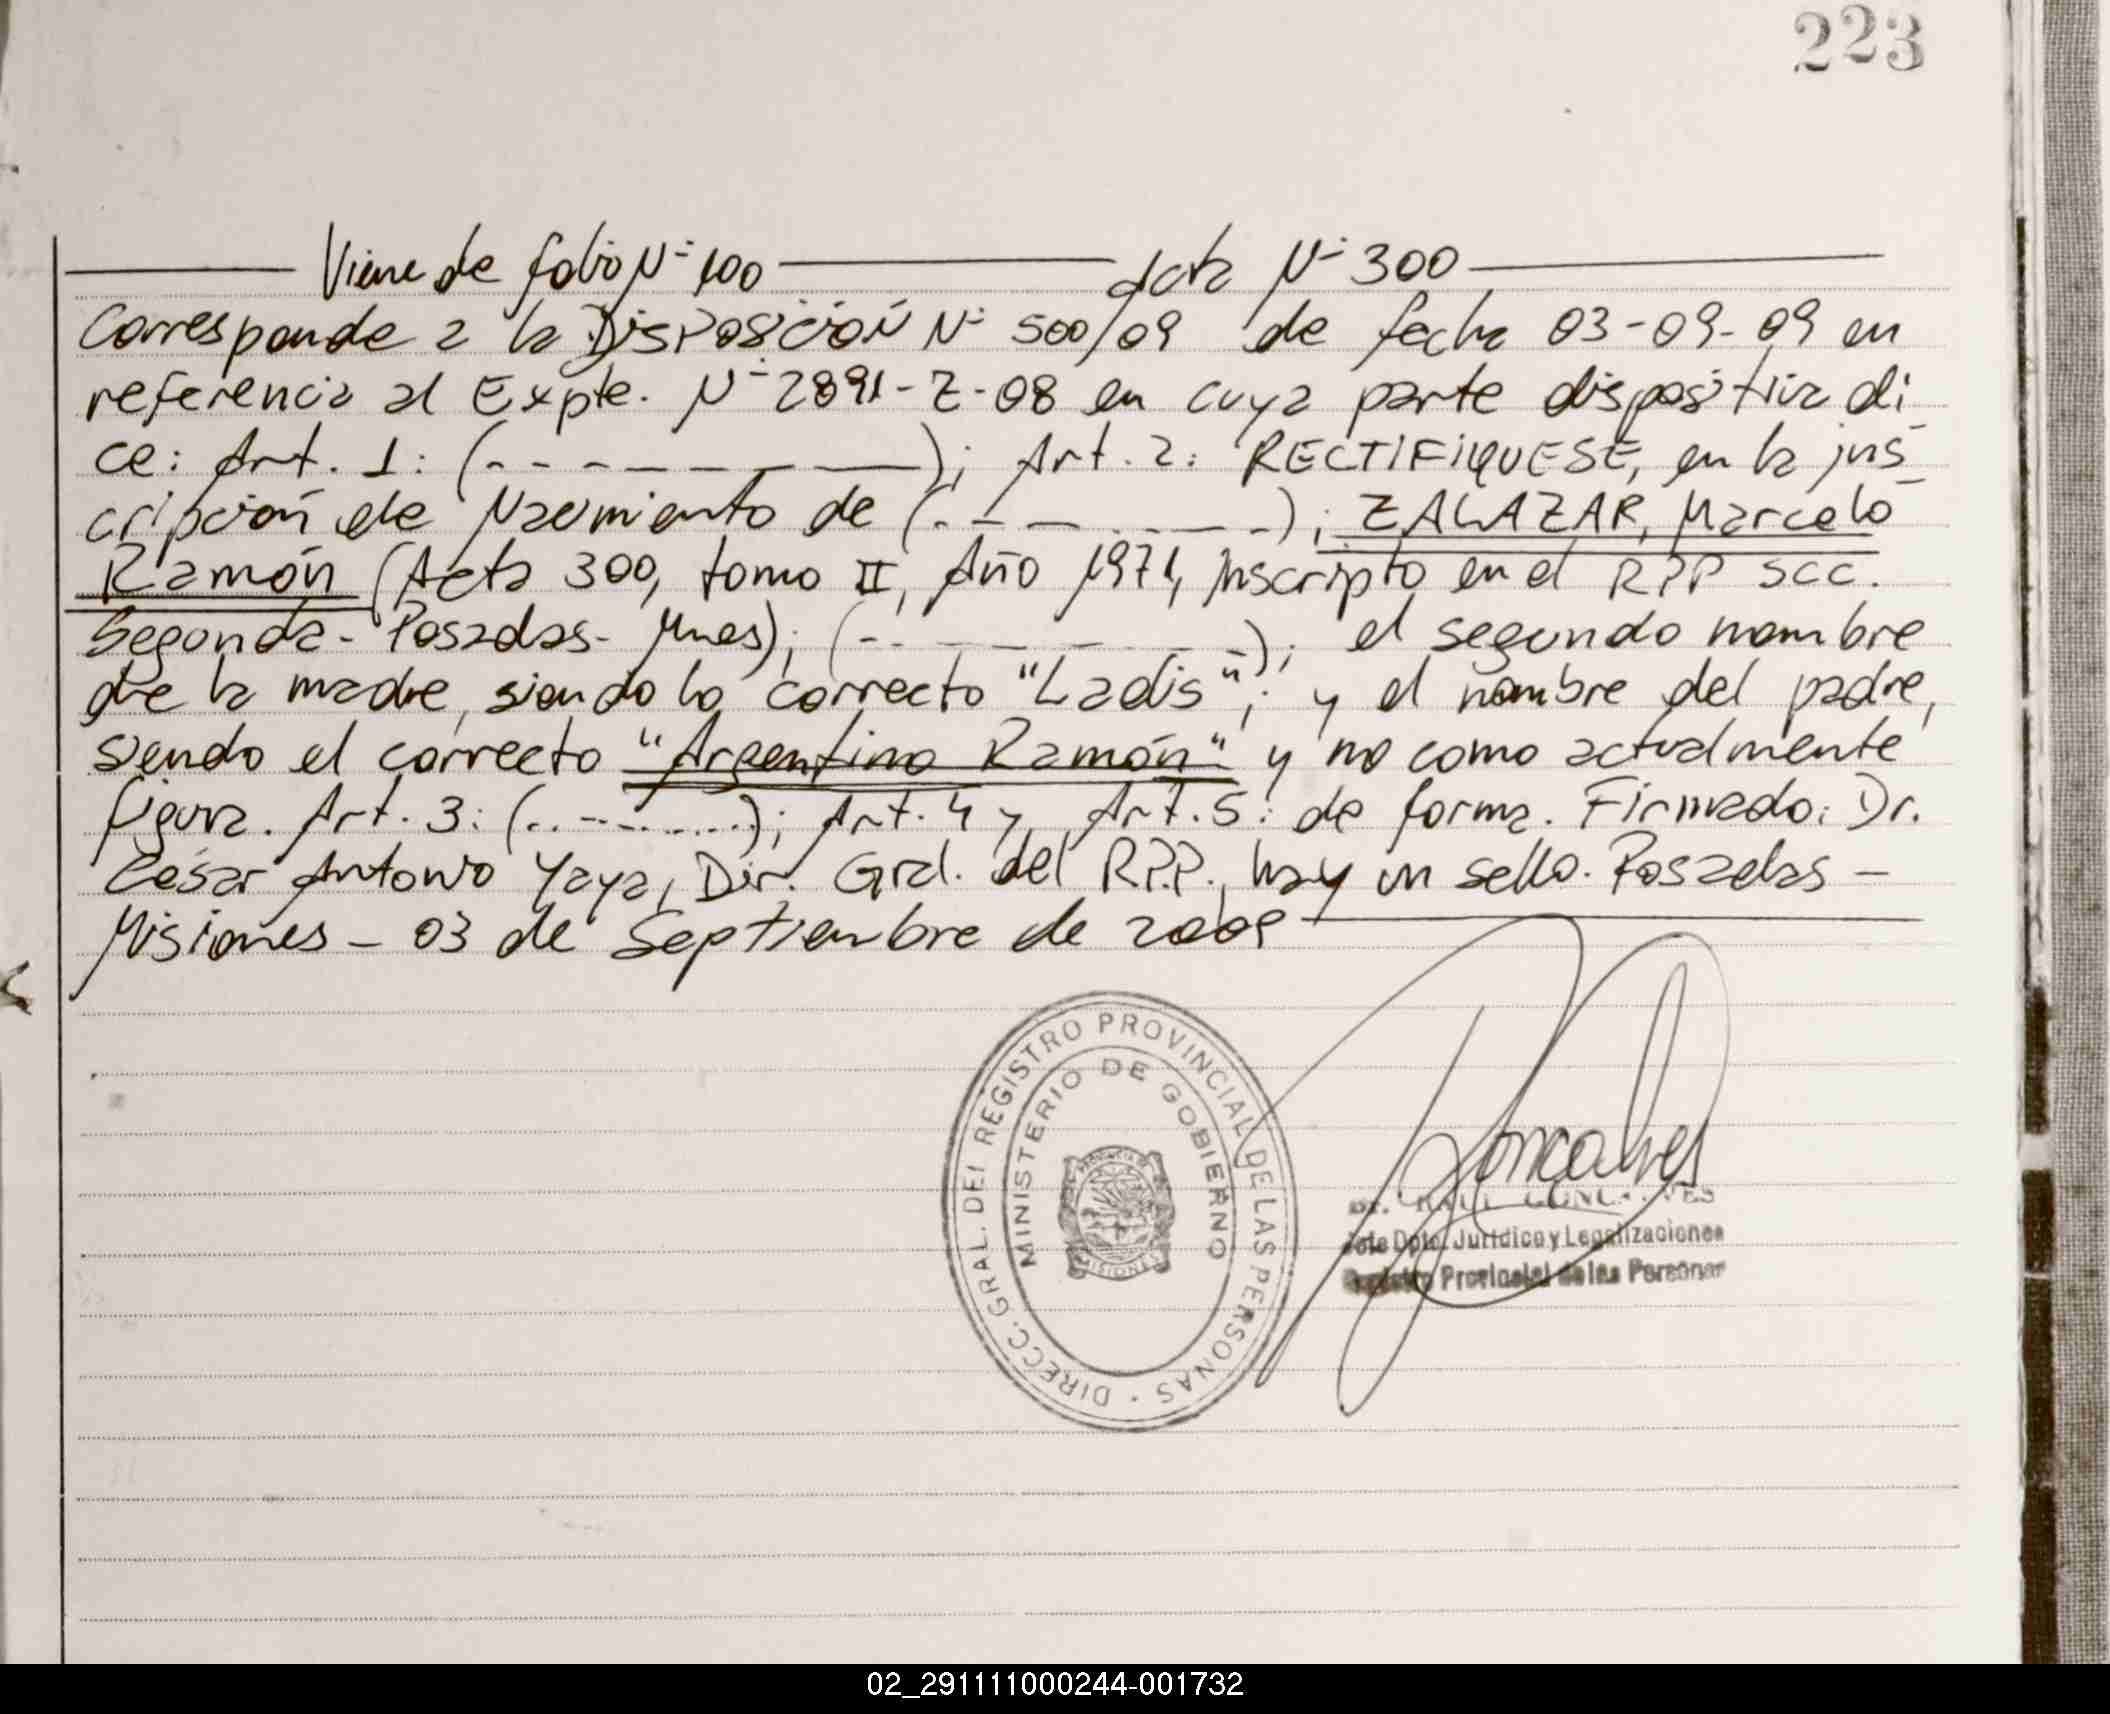 223
Viene de folio Nº 100 acta Nº 300
Corresponde a la DISPOSICIÓN Nº 500/09 de fecha 03-09-09 en
referencia al Expte. Nº 2891-Z-08 en cuya parte dispositiva di
ce: Art. 1: (- - - - - - - -); Art. 2: RECTIFIQUESE, en la ins-
cripción de Nacimiento de (- - - - - - -); ZALAZAR, Marcelo
Ramón (Acta 300, tomo II, Año 1971, inscripto en el RPP SCC.
Segunda- Posadas- Mnes); (- - - - - - -); el segundo nombre
de la madre, siendo lo correcto "Ladis"; y el nombre del padre,
siendo el correcto "Argentino Ramón" y no como actualmente
figura. Art. 3: (.. - - - - ...); Art. 4 y Art. 5: de forma. Firmado: Dr.
César Antonio Yaya, Dir. Gral. del R.P.P., hay un sello. Posadas -
Misiones - 03 de Septiembre de 2009
DIRECC. GRAL. DEL REGISTRO PROVINCIAL DE LAS PERSONAS
MINISTERIO DE GOBIERNO
PROVINCIA DE
MISIONES
Goncalves
Dr. RAUL GONCALVES
Jefe Dpto. Jurídico y Legalizaciones
Registro Provincial de las Personas
02_291111000244-001732